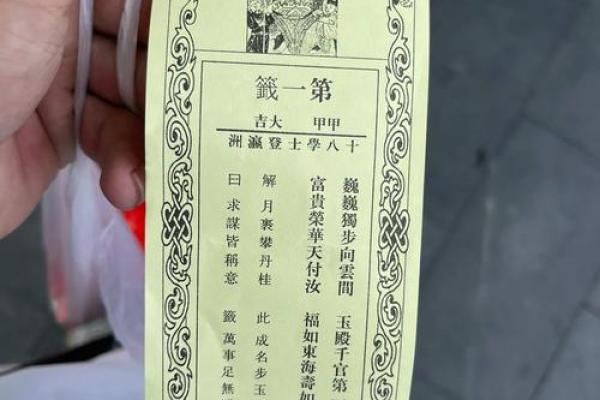 第一籤
甲甲 大吉
十八學士登瀛洲
巍巍獨步向雲間 玉殿千官第
富貴榮華天付汝 福如東海壽如
解 月裹攀丹桂 此 成名步玉
曰 求謀皆稱意 籤 萬事足無